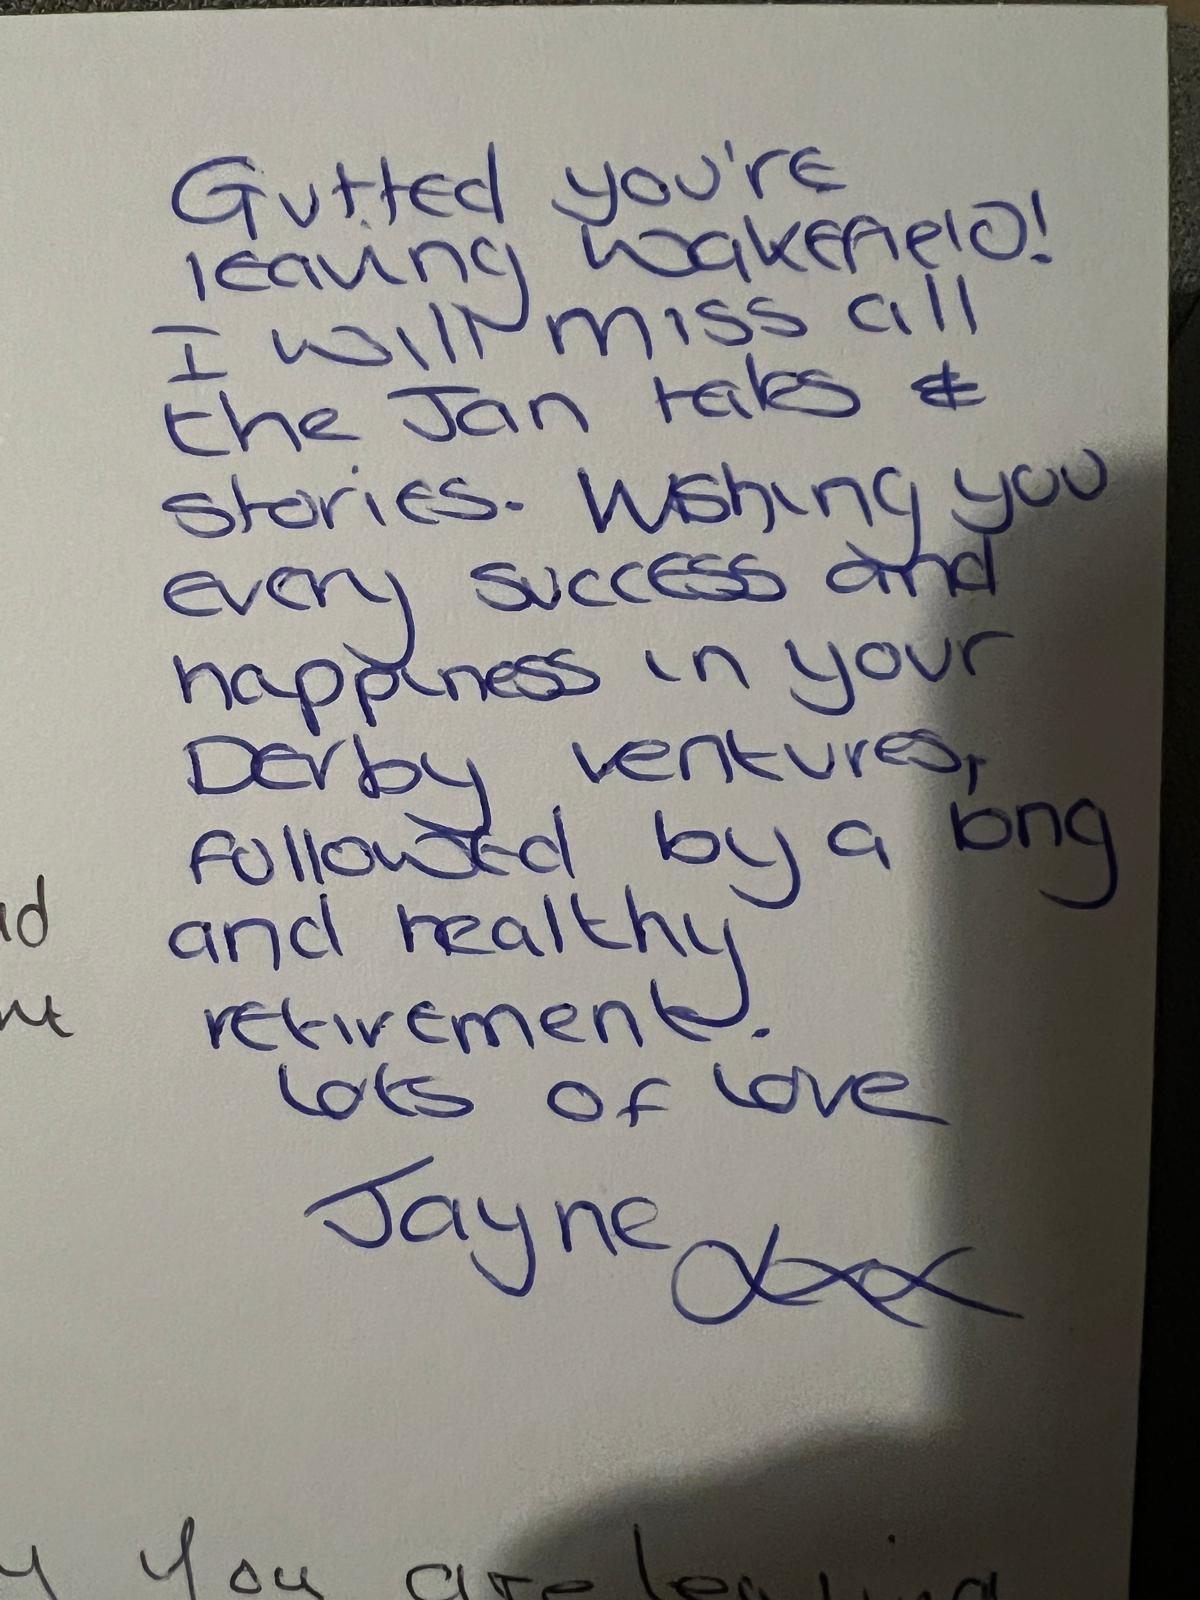 Gutted you're
leaving Wakefield!
I will miss all
the Jan tales &
stories. Wishing you
every success and
happiness in your
Derby ventures,
followed by a long
and healthy
retirement.
Lots of love
Jayne xxx
You are leaving